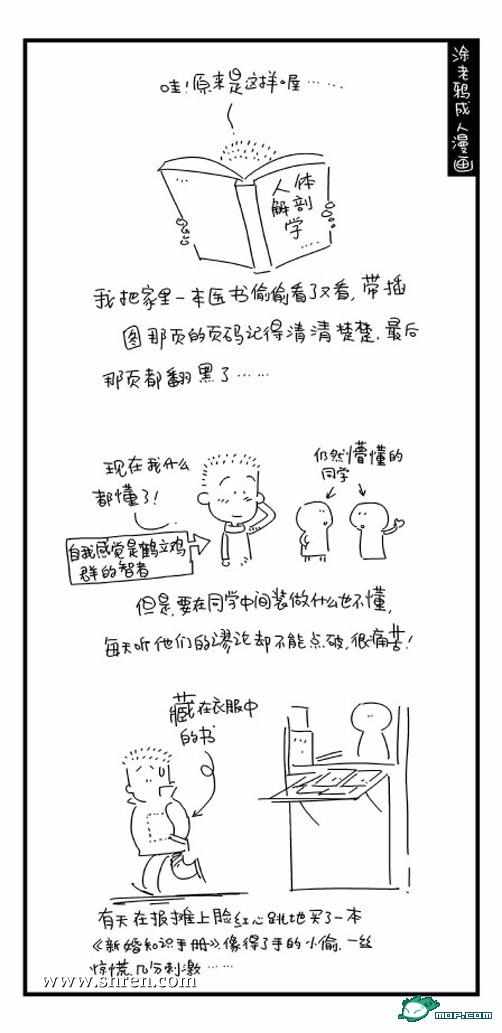 涂老鸦成人漫画
哇！原来是这样喔……
人体
解剖
学
我把家里一本医书偷偷看了又看，带插
图那页的页码记得清清楚楚，最后
那页都翻黑了……
现在我什么
都懂了！
仍然懵懂的
同学
自我感觉是鹤立鸡
群的智者
但是，要在同学中间装做什么也不懂，
每天听他们的谬论却不能点破，很痛苦！
藏在衣服中
的书
有天在报摊上脸红心跳地买了一本
《新婚知识手册》，像得了手的小偷，一丝
惊慌，几分刺激……
www.shren.com
mop.com